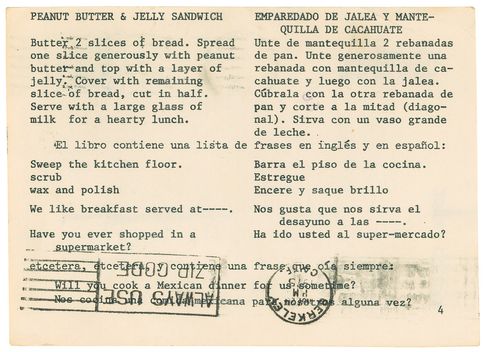 PEANUT BUTTER & JELLY SANDWICH
Butter 2 slices of bread. Spread
one slice generously with peanut
butter and top with a layer of
jelly. Cover with remaining
slice of bread, cut in half.
Serve with a large glass of
milk for a hearty lunch.
EMPAREDADO DE JALEA Y MANTE-
QUILLA DE CACAHUATE
Unte de mantequilla 2 rebanadas
de pan. Unte generosamente una
rebanada con mantequilla de ca-
cahuate y luego con la jalea.
Cúbrala con la otra rebanada de
pan y corte a la mitad (diago-
nal). Sirva con un vaso grande
de leche.
El libro contiene una lista de frases en inglés y en español:
Sweep the kitchen floor. Barra el piso de la cocina.
scrub Estregue
wax and polish Encere y saque brillo
We like breakfast served at----. Nos gusta que nos sirva el
desayuno a las ----.
Have you ever shopped in a Ha ido usted al super-mercado?
supermarket?
etcetera, etcetera, y contiene una frase que oía siempre:
Will you cook a Mexican dinner for us sometime?
Nos cocina una comida mexicana para nosotros alguna vez?
4
ALWAYS USE
ZIP CODE
BERKELEY
CALIF
PM